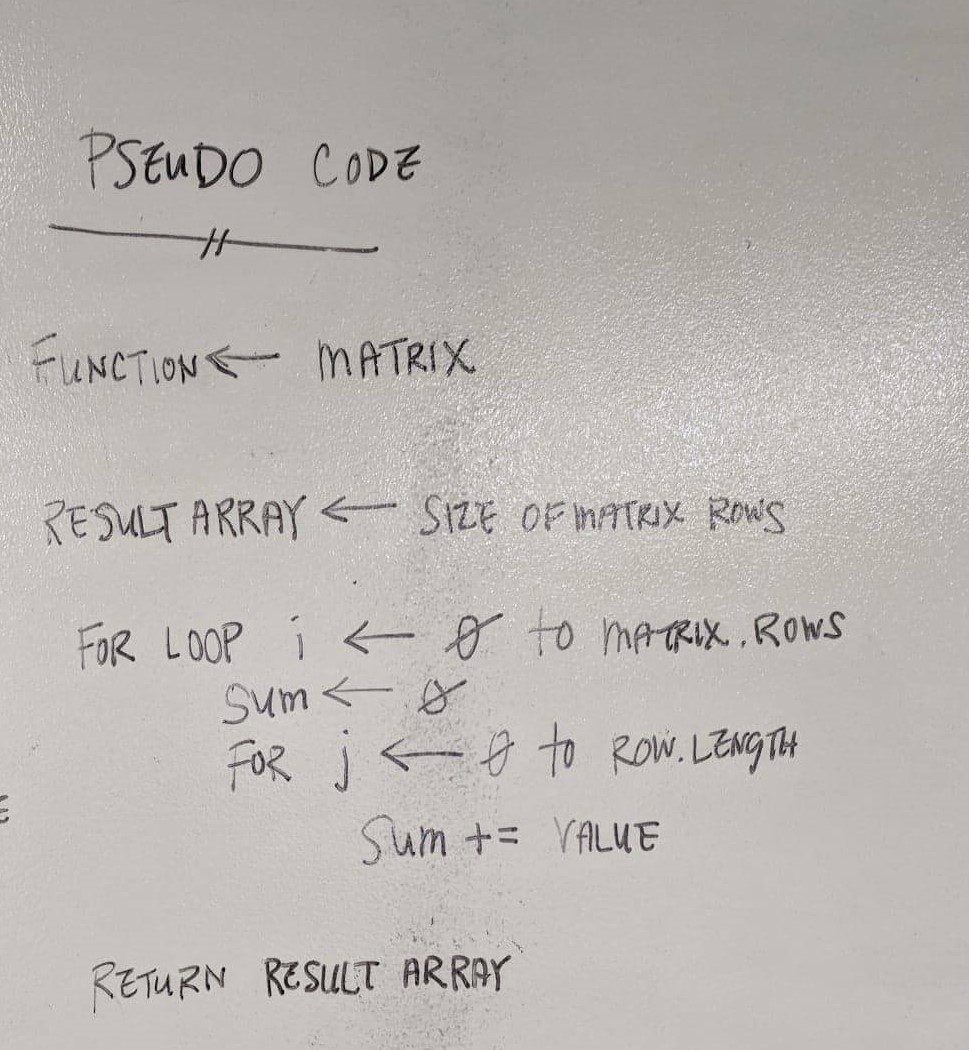 PSEUDO CODE
FUNCTION ← MATRIX
RESULT ARRAY ← SIZE OF MATRIX ROWS
FOR LOOP i ← 0 to MATRIX.ROWS
SUM ← 0
FOR j ← 0 to ROW.LENGTH
SUM += VALUE
RETURN RESULT ARRAY